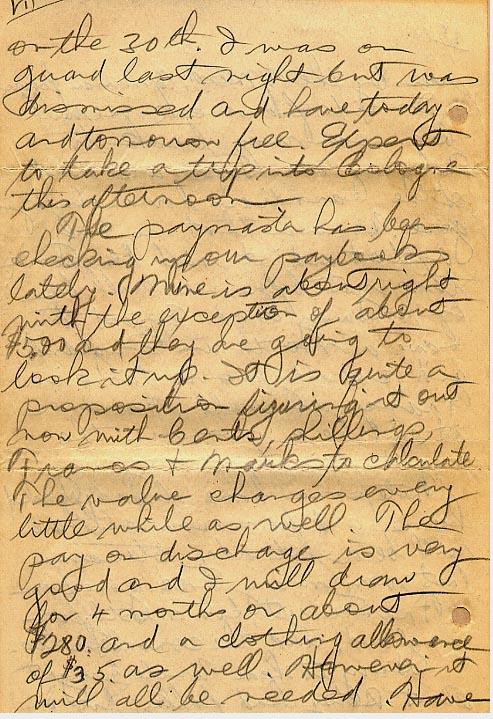 VII
on the 30th. I was on
guard last night but was
dismissed and have today
and tomorrow free. Expect
to take a trip into Cologne
this afternoon.
The paymaster has been
checking up our paybooks
lately. Mine is about right
with the exception of about
$5.00 and they are going to
look it up. It is quite a
proposition figuring it out
now with cents, shillings,
Francs + Marks to calculate
The value changes every
little while as well. The
pay on discharge is very
good and I will draw
for 4 months or about
$280. and a clothing allowance
of $35. as well. However it
will all be needed. Have